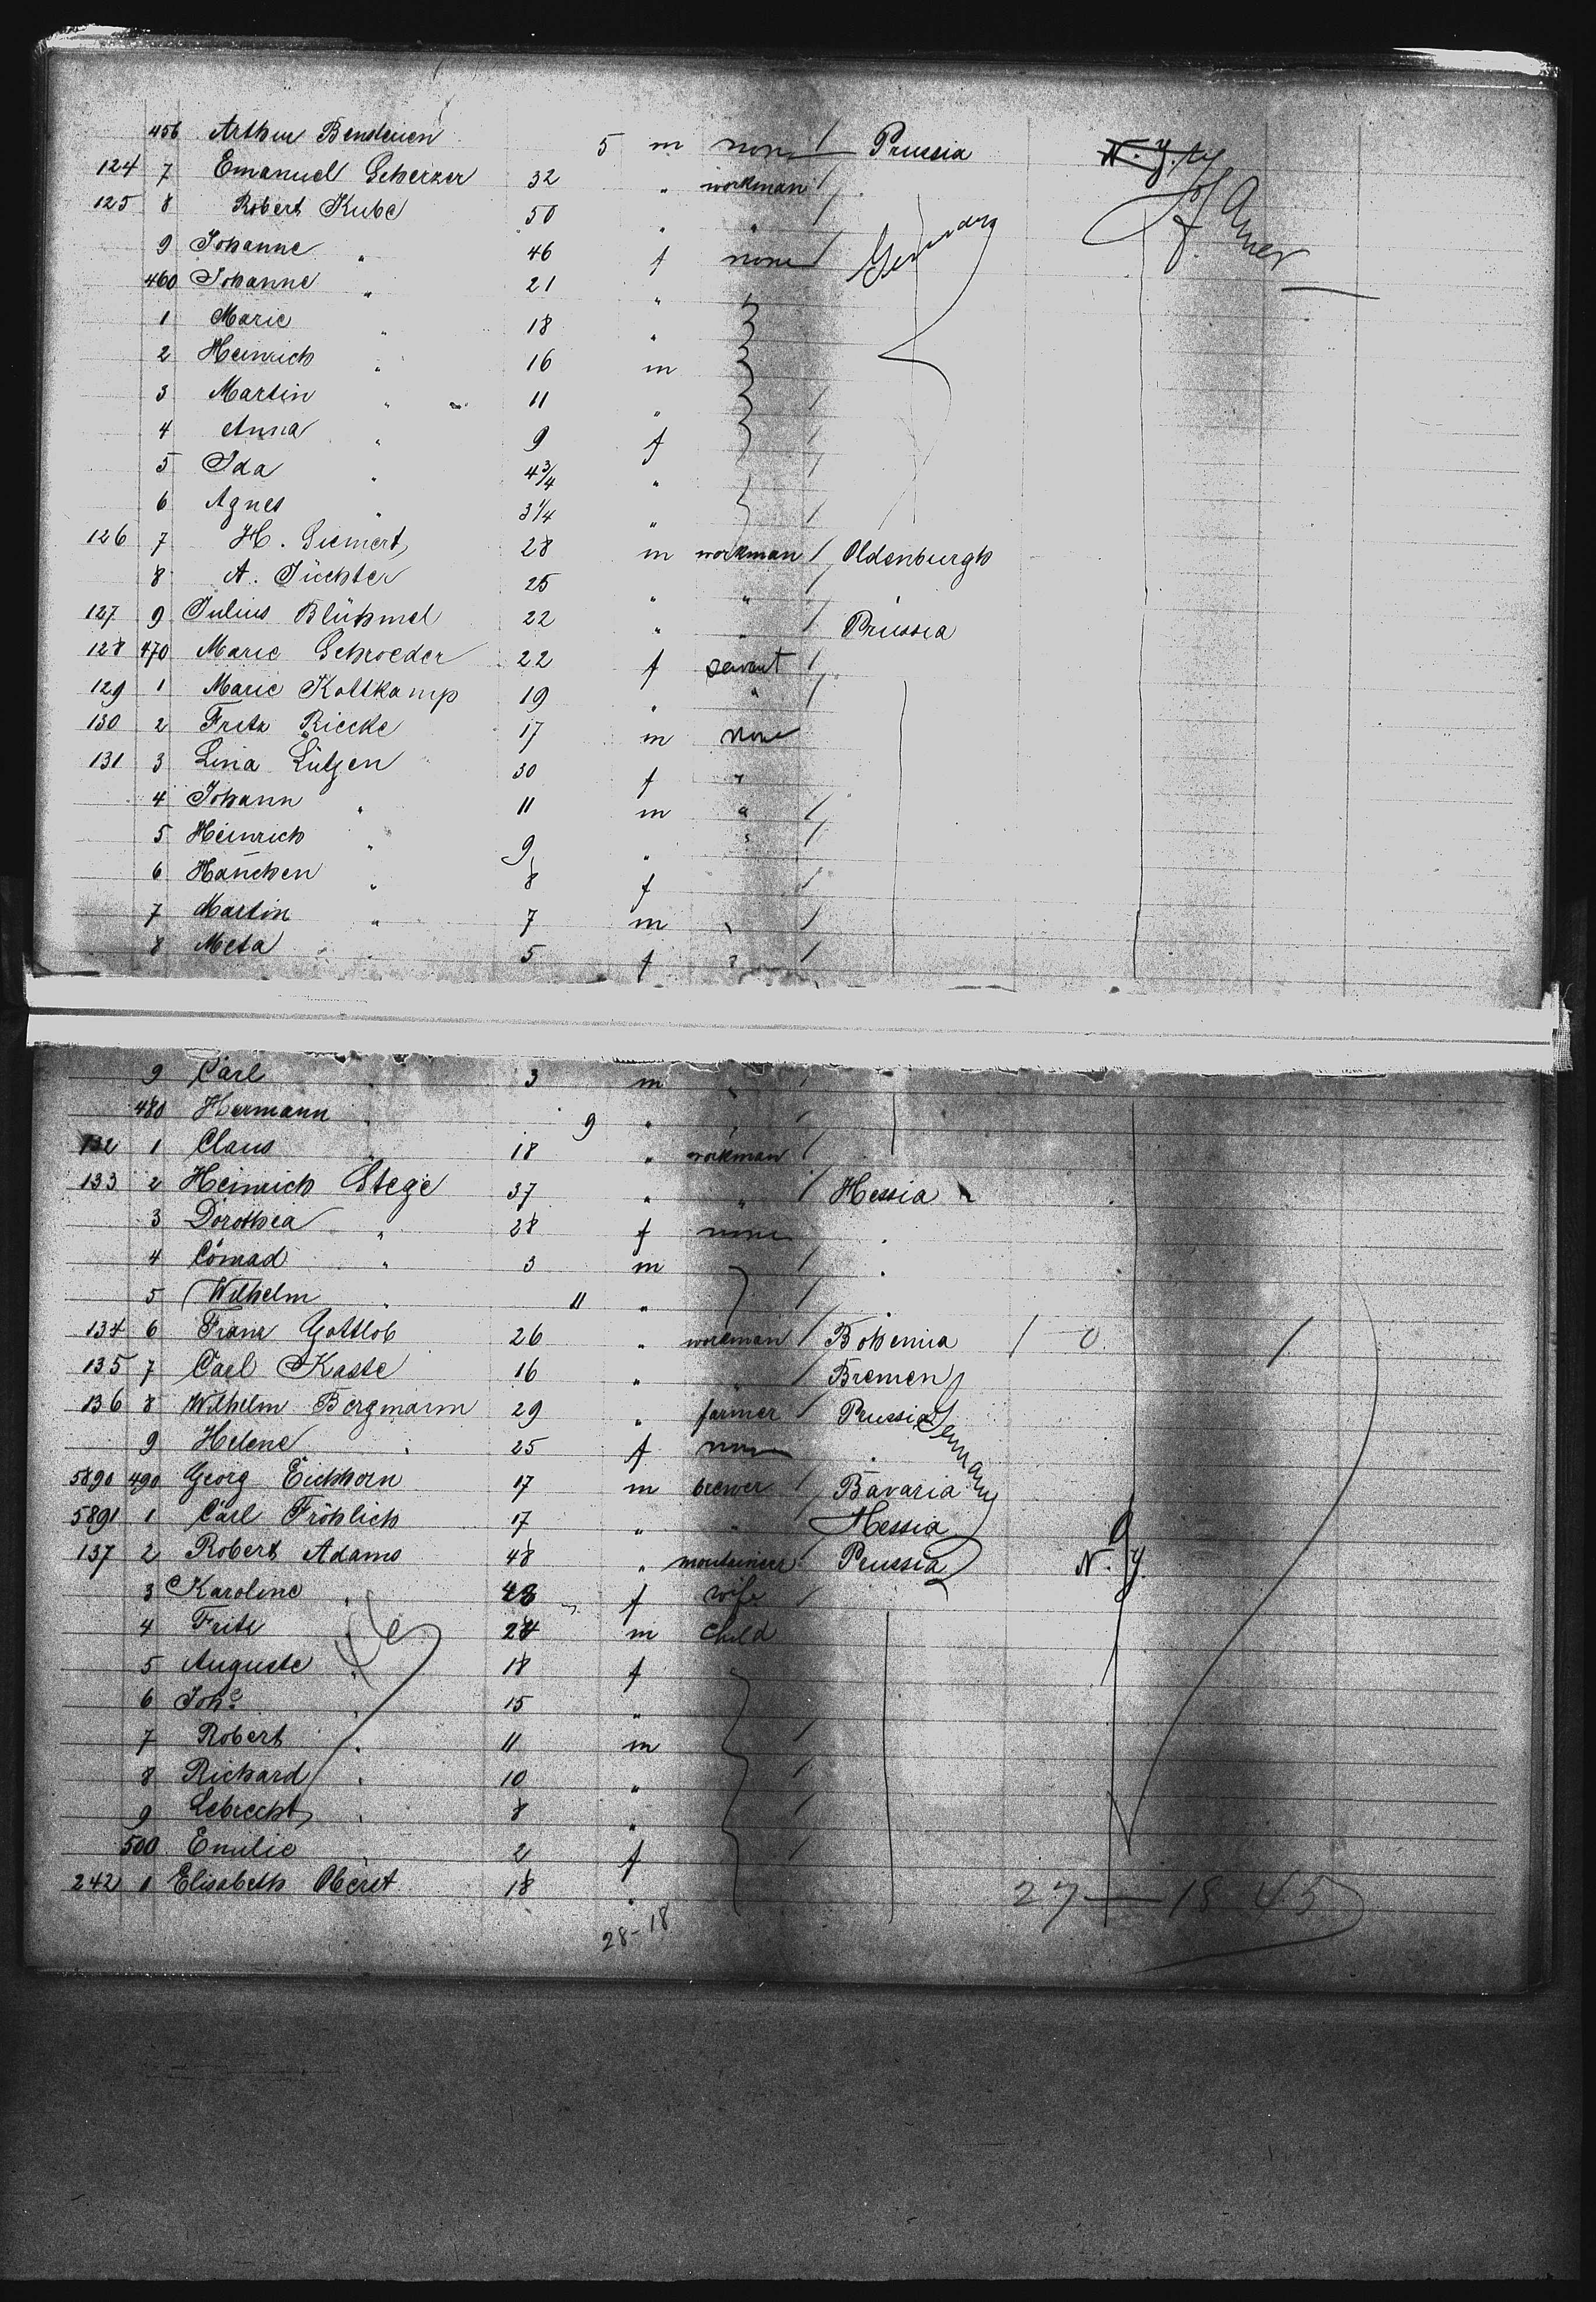 456 Arthur Bendenen 5 m none / Prussia N. Y. Cy
124 7 Emanuel Scherzer 32 " workman / U S of Amer
125 8 Robert Kube 50 " " / Germany
9 Johanne " 46 f none /
460 Johanne " 21 " "
1 Marie " 18 "
2 Heinrich " 16 m
3 Martin " " 11 " /
4 Anna " 9 f /
5 Ida " 4 3/4 " /
6 Agnes " 3 1/4 " /
126 7 H. Siemert 28 m workman / Oldenburgh
8 A. Tüchter 25 " " / "
127 9 Julius Blühmel 22 " " / Prussia
128 470 Marie Schroeder 22 f servant /
129 1 Marie Kottkamp 19 " " /
130 2 Fritz Riecke 17 m none
131 3 Lina Lütgen 30 f "
4 Johann " 11 m " /
5 Heinrich " 9 " " /
6 Hanchen " 8 f /
7 Martin " 7 m " /
8 Meta " 5 f " /
9 Carl " 3 m " /
480 Hermann " 9 " " /
132 1 Claus " 18 " workman /
133 2 Heinrich Stege 37 " " / Hessia
3 Dorothea " 28 f none "
4 Conrad " 3 m / "
5 Wilhelm " 11 " / "
134 6 Franz Gottlob 26 " workman / Bohemia / 0 /
135 7 Carl Kaste 16 " " / Bremen
136 8 Wilhelm Bergmann 29 " farmer / Prussia Germany
9 Helene " 25 f none "
5890 490 Georg Eichhorn 17 m brewer / Bavaria
5891 1 Carl Fröhlich 17 " " Hessia
137 2 Robert Adams 48 " Prussia N. Y.
3 Karoline " 48 f wife /
4 Fritz " 24 m child
5 Auguste " 18 f
6 Johe " 15 "
7 Robert " 11 m /
8 Richard " 10 " /
9 Lebrecht " 8 " /
500 Emilie " 2 f /
242 1 Elisabeth Oberst 18 "
27 — 18 45
28-18